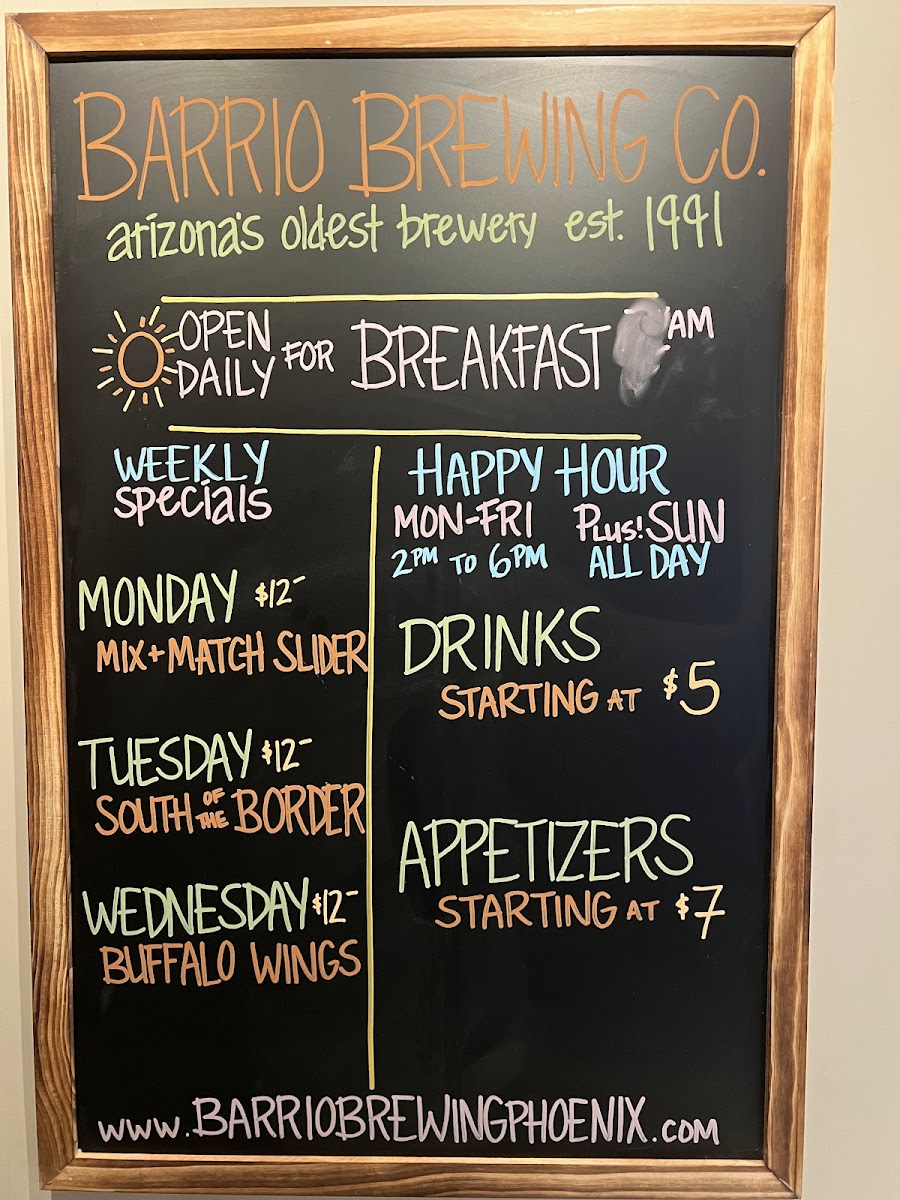 BARRIO BREWING CO.
arizona's oldest brewery est. 1991
OPEN DAILY FOR BREAKFAST AM
WEEKLY
specials
MONDAY $12-
MIX+MATCH SLIDER
TUESDAY $12-
SOUTH OF THE BORDER
WEDNESDAY $12-
BUFFALO WINGS
HAPPY HOUR
MON-FRI PLUS! SUN
2PM TO 6PM ALL DAY
DRINKS
STARTING AT $5
APPETIZERS
STARTING AT $7
www.BARRIOBREWINGPHOENIX.com